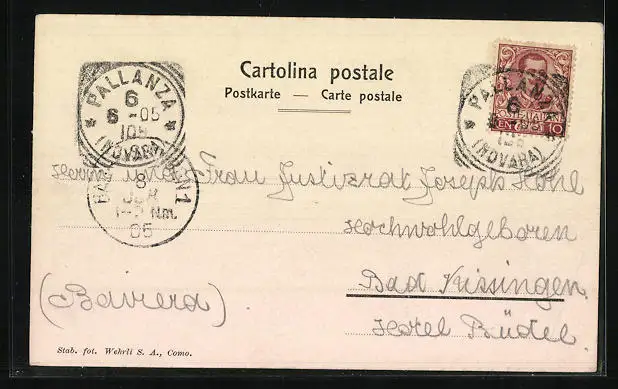 Cartolina postale
Postkarte — Carte postale
PALLANZA
6
6 -05
10S
(NOVARA)
PALLANZA
6
(NOVARA)
10
BAD
8
Nm.
05
1
Herrn und Frau Justizrat Joseph
Hochwohlgeboren
Bad Kissingen
Hotel Büdel.
(Baviera)
Stab. fot. Wehrli S. A., Como.